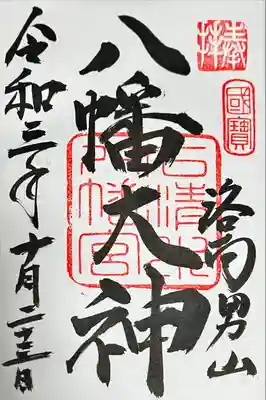 奉拝
國寶
洛南男山
八幡大神
石清水
八幡宮
令和三年十月二十三日